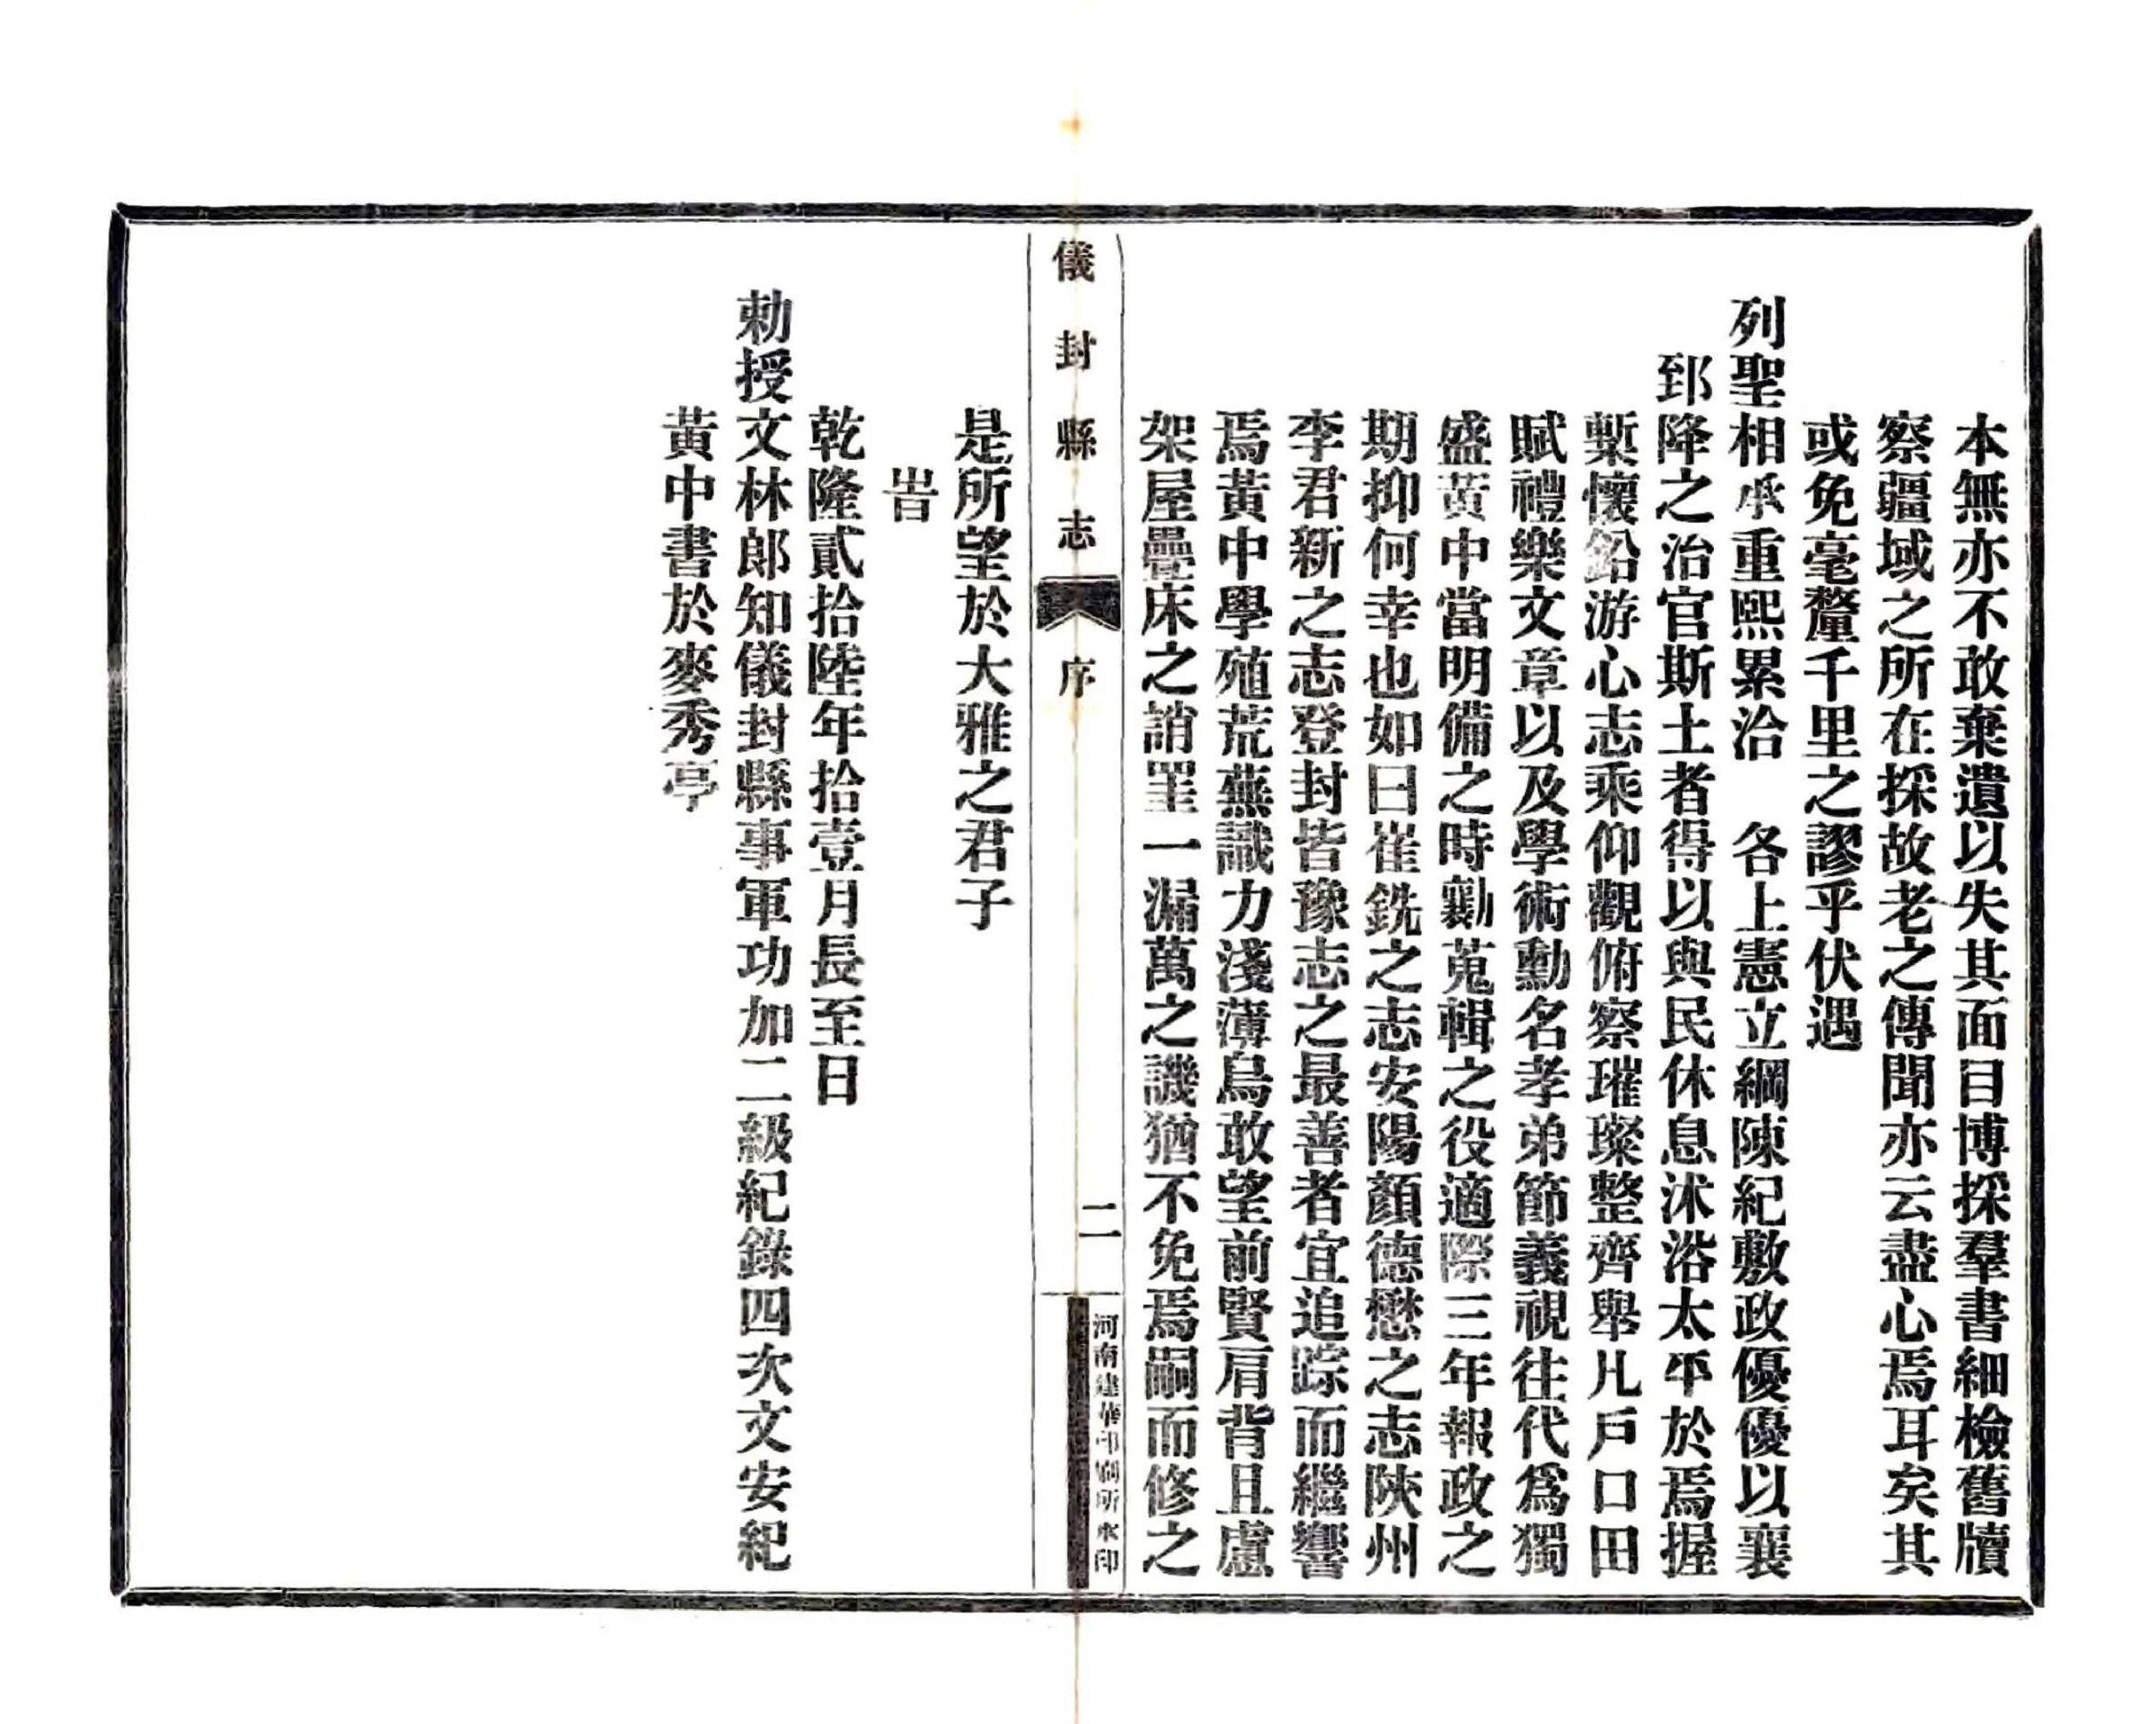 本無亦不敢棄遺以失其面目博採羣書細檢舊牘
察疆域之所在採故老之傳聞亦云盡心焉耳矣其
或免毫釐千里之謬乎伏遇
列聖相承重熙累洽　各上憲立綱陳紀敷政優優以襄
郅降之治官斯土者得以與民休息沭浴太平於焉握
槧懷鉛游心志乘仰觀俯察璀璨整齊舉凡戶口田
賦禮樂文章以及學術勳名孝弟節義視往代爲獨
盛黃中當明備之時勷蒐輯之役適際三年報政之
期抑何幸也如曰崔銑之志安陽顏德懋之志陝州
李君新之志登封皆豫志之最善者宜追踪而繼響
焉黃中學殖荒蕪識力淺薄烏敢望前賢肩背且慮
架屋疊床之誚罣一漏萬之譏猶不免焉嗣而修之
儀封縣志
序
二
河南建華印刷所承印
是所望於大雅之君子
旹
乾隆貳拾陸年拾壹月長至日
勅授文林郎知儀封縣事軍功加二級紀錄四次文安紀
黃中書於麥秀亭